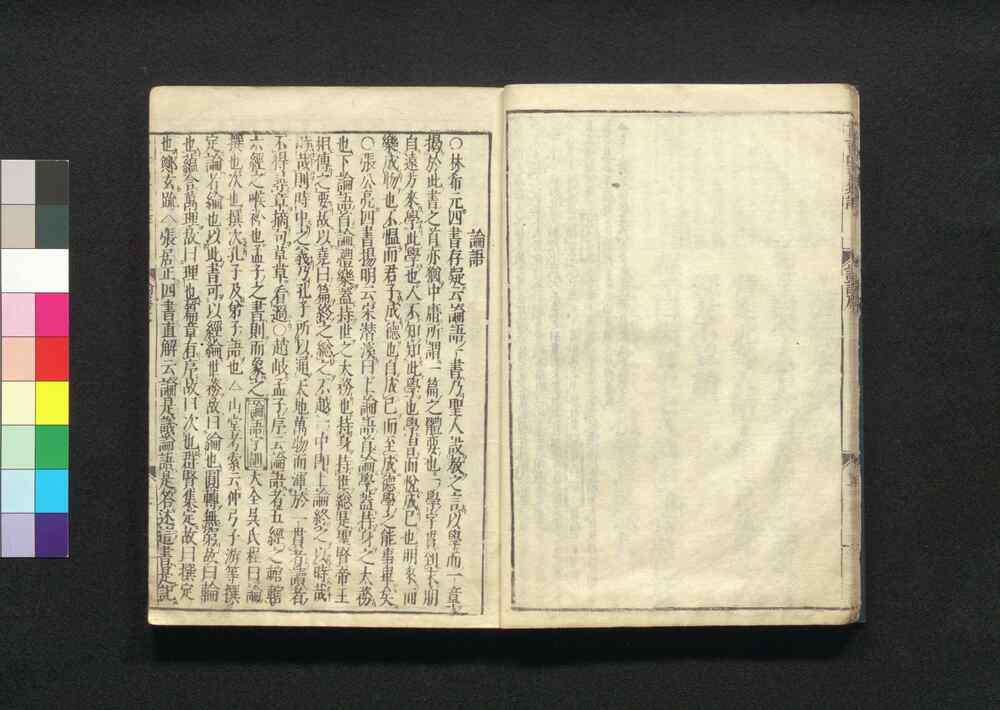 論語
○林希元四書存疑云論語一書乃聖人設教之言以學而一章
揭於此書之首亦猶中庸所謂一篇之體要也一學字貫到大朋
自遠方來學此學也人不知知此學也學習而悅成己也朋來而
樂成物也不慍而君子成德也自成己而至成德學之能事畢矣
○張公亮四書揚明云宋潛溪曰上論語首論學蓋持身之大務
也下論語首論禮樂蓋持世之大務也持身持世總是聖賢帝王
相傳之要故以堯曰篇終之總之不越一中內上論終之以時哉
時哉則時中之義乃孔子所以通天地萬物而渾於一貫者讀者
不得尋章摘句草草看過○趙岐孟子序云論語者五經之錧鎋
六經之喉衿也孟子之書則而象之 論語字訓 大全吳氏程曰論
撰也次也撰次孔子及弟子語也△山堂考索云仲弓子游等撰
定論者綸也以此書可以經綸世務故曰綸也圓轉無窮故曰輪
也蘊含萬理故曰理也篇章有序故曰次也群賢集定故曰撰定
也鄭玄 △張居正四書直解云論是議論語是答述這書是記